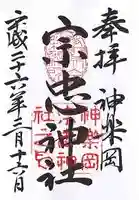 奉拝 神楽岡
宗忠神社
神楽岡
宗忠神
社之印
平成二十六年三月十六日